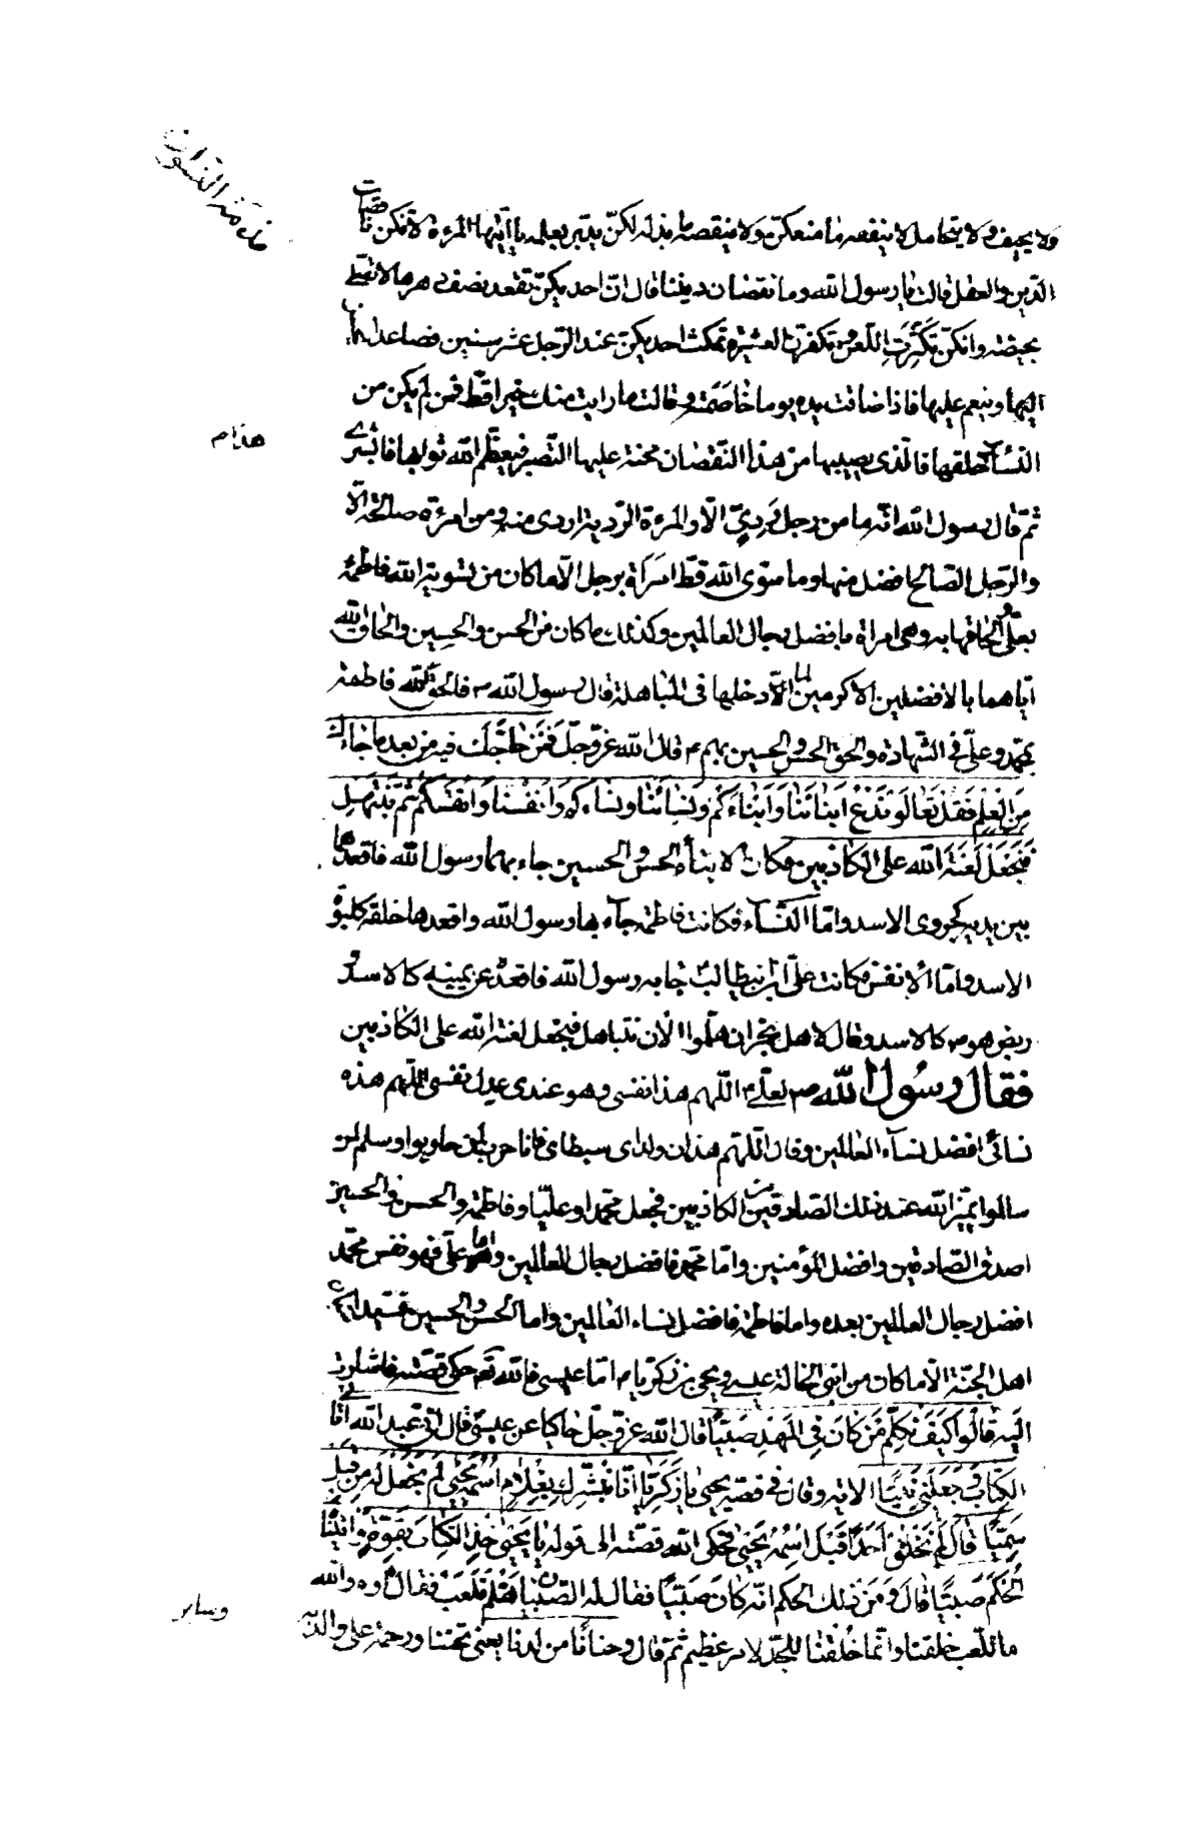 مذمة النسوان
ولا يحيف ولا يتحامل لا ينفعه ما منعكن ولا ينقصه ما بذله لكن يدبر بعلمه يا ايتها المرءة لانكن ناقصات
الدين والعقل قالت يا رسول الله وما نقصان ديننا قال ان احديكن تقعد نصف دهرها لا تصلى
بحيضة وانكن تكثرن اللعن وتكفرن العشيرة تمكث احديكن عند الرجل عشر سنين فصاعدا يحسن
اليها وينعم عليها فاذا ضاقت يده يوما خاصمته وقالت ما رايت منك خيرا قط فمن لم يكن من
النساء هذا خلقها فالذى يصيبها من هذا النقصان محنة عليها لتصبر فيعظم الله ثوابها فابشرى
هذا م
ثم قال رسول الله انه ما من رجل ردى الا والمرءة الردية اردى منه ومن امرءة صالحة الا
والرجل الصالح افضل منها وما سوى الله قط امراة برجل الا ما كان من تسوية الله فاطمة
بعلى والحاقها به وهى امراة بافضل رجال العالمين وكذلك ما كان من الحسن والحسين والحاق الله
اياهما بالافضلين الاكرمين لما ادخلها فى المباهلة قال رسول الله ص فالحق الله فاطمة
بمحمد وعلى فى الشهادة والحق الحسن والحسين بهم م قال الله عز وجل فمن حاجك فيه من بعد ما جاءك
من العلم فقل تعالو ندع ابنائنا وابناءكم ونسائنا ونساءكم وانفسنا وانفسكم ثم نبتهل
فنجعل لعنة الله على الكاذبين فكان الابناء الحسن والحسين جاء بهما رسول الله فاقعدهما
بين يديه كجروى الاسد واما النساء فكانت فاطمة جآء بها رسول الله واقعدها خلفه كلبوة
الاسد واما الانفس فكانت على ابن ابيطالب جا به رسول الله فاقعده عن يمينه كالاسد و
ربض هو م كالاسد وقال لاهل نجران هلموا الآن نتباهل فنجعل لعنة الله على الكاذبين
فقال رسول الله ص لعلى م اللهم هذا نفسى وهو عندى عدل نفسى اللهم هذه
نسائى افضل نسآء العالمين وقال اللهم هذان ولداى وسبطاى فانا حرب لمن حاربوا وسلم لمن
سالموا ميز الله عند ذلك الصادقين من الكاذبين فجعل محمدا وعليا وفاطمة والحسن والحسين
اصدق الصادقين وافضل المؤمنين واما محمد فافضل رجال العالمين واما على فهو نفس محمد
افضل رجال العالمين بعده واما فاطمة فافضل نساء العالمين واما الحسن والحسين فسيدا شباب
اهل الجنة الا ما كان من ابنى الخالة عيسى ويحيى بن زكريا م اما عيسى فالله تعم حكى قصته فاشارت
اليه قالوا كيف نكلم من كان فى المهد صبيا قال الله عز وجل حاكيا عن عيسى قال انى عبد الله اتانى
الكتاب وجعلنى نبيا الاية وقال فى قصة يحيى يا زكريا انا نبشرك بغلام اسمه يحيى لم نجعل له من قبل
سميا قال لم نخلق احدا قبل اسمه يحيى فحكى الله قصته الى قوله يا يحيى خذ الكتاب بقوة وآتيناه
الحكم صبيا قال ومن ذلك الحكم انه كان صبيا فقال له الصبيان هلم نلعب فقال اوه والله
ما للعب خلقنا وانما خلقنا للجد لامر عظيم ثم قال وحنانا من لدنا يعنى تحننا ورحمة على والديه
وساير